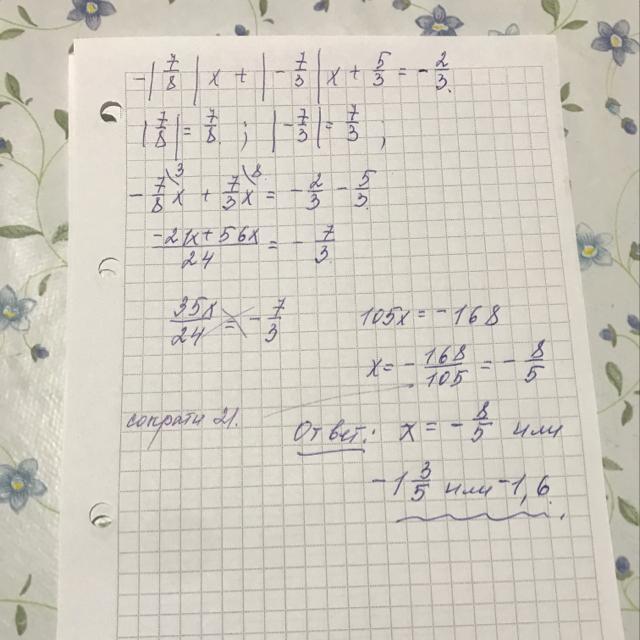 -|7/8|x + |-7/3|x + 5/3 = -2/3.
|7/8| = 7/8 ; |-7/3| = 7/3 ;
-7/8\3 x + 7/3\8 x = -2/3 - 5/3
(-21x+56x)/24 = -7/3
35x/24 = -7/3 105x = -168
x = -168/105 = -8/5
сократи 21.
Ответ: x = -8/5 или
-1 3/5 или -1,6.